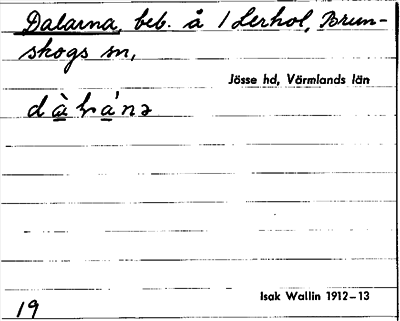 Dalarna, beb. å 1 Lerhol, Brun-
skogs sn,
Jösse hd, Värmlands län
Isak Wallin 1912–13
19